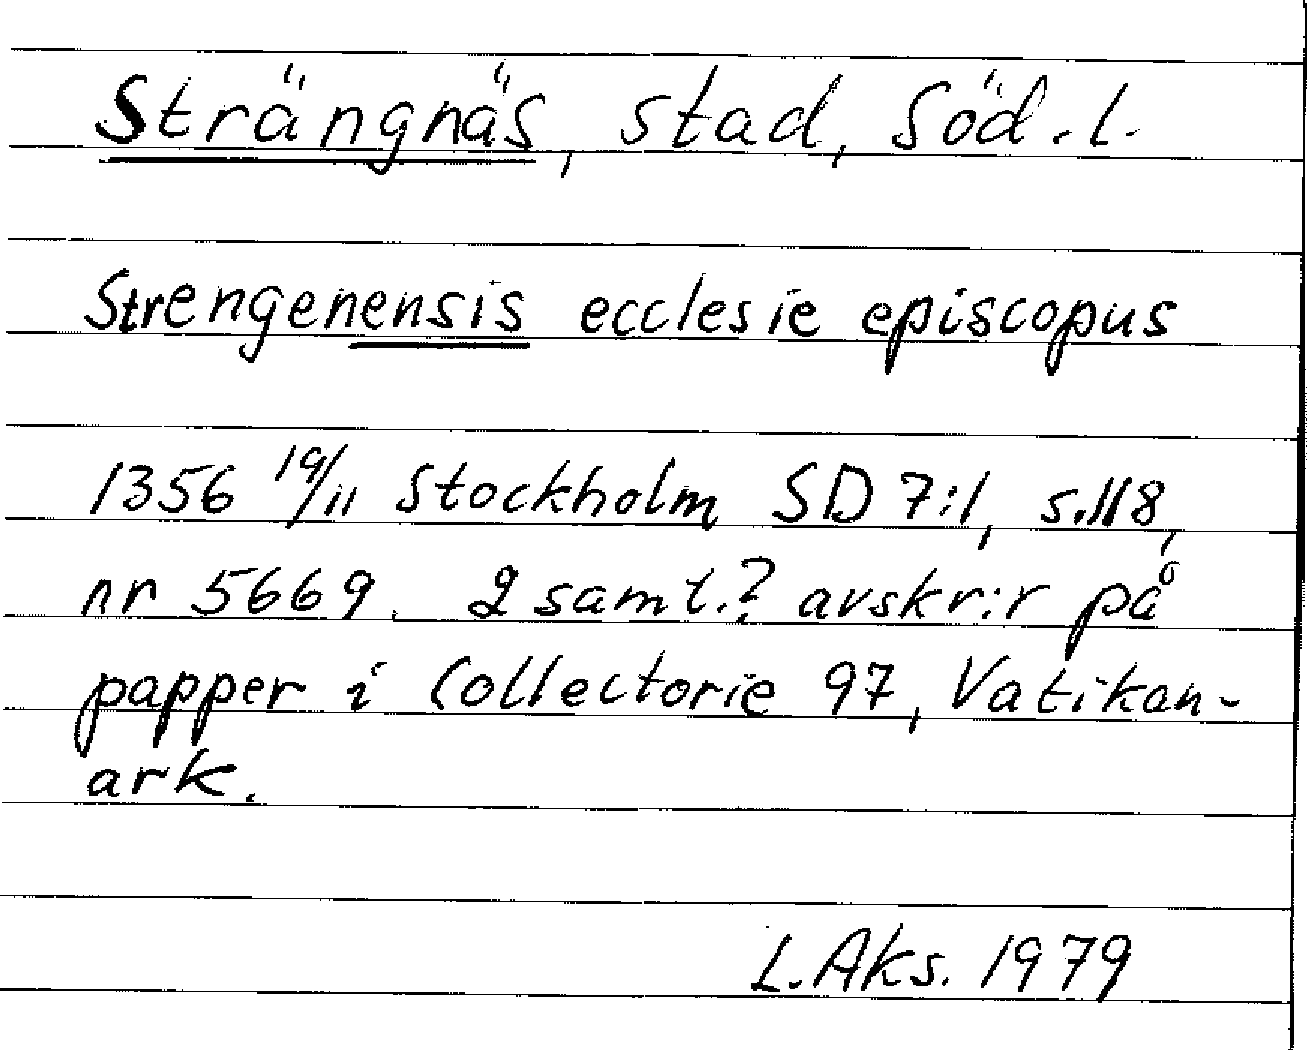 Strängnäs, stad, Söd. l.
Strengenensis ecclesie episcopus
1356 19/11 Stockholm SD 7:1, s. 118,
nr 5669. 2 samt.? avskr:r på
papper i Collectorie 97, Vatikan-
ark.
L. Aks. 1979